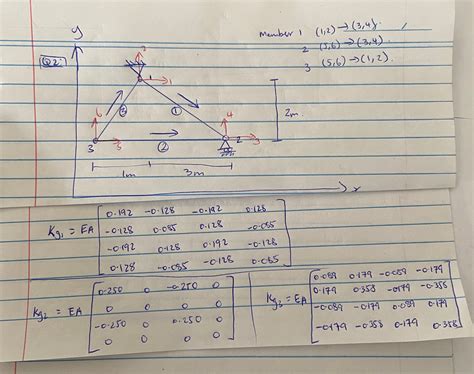 y
Member 1 (1,2) → (3,4).
2 (5,6) → (3,4)
3 (5,6) → (1,2).
Q2
2
1 1
6 3 1 4
2m
3 5 2 2 3
1m 3m
x
Kg1 = EA [0.192 -0.128 -0.192 0.128
-0.128 0.085 0.128 -0.085
-0.192 0.128 0.192 -0.128
0.128 -0.085 -0.128 0.085]
Kg2 = EA [0.250 0 -0.250 0
0 0 0 0
-0.250 0 0.250 0
0 0 0 0]
Kg3 = EA [0.089 0.179 -0.089 -0.179
0.179 0.358 -0.179 -0.358
-0.089 -0.179 0.089 0.179
-0.179 -0.358 0.179 0.358]